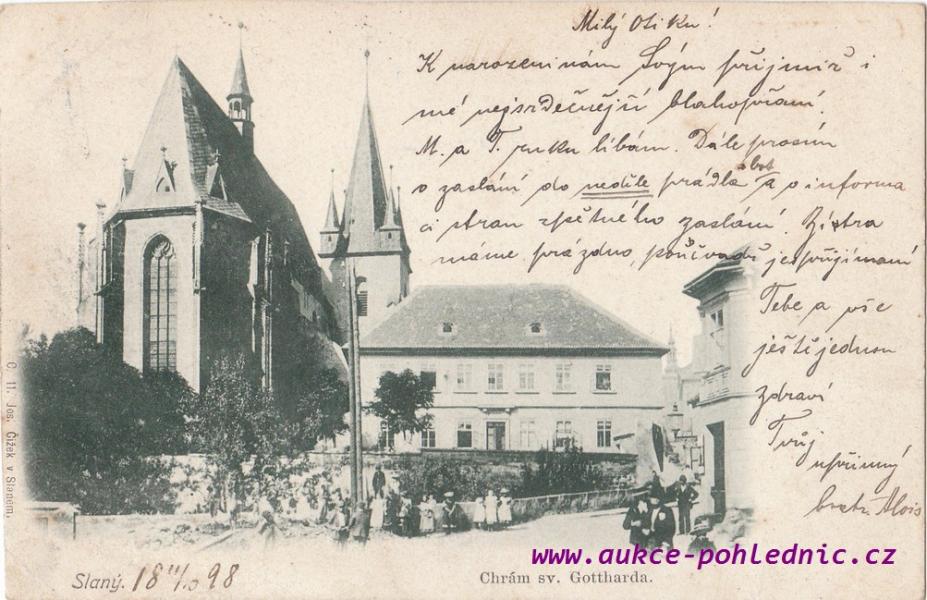 Milý Otíku!
K narozeninám Svým přijmiž i
mé nejsrdečnější blahopřání.
M. a T. ruku líbám. Dále prosím
o zaslání do neděle prádla a o informa
ci stran zpětného zaslání. Zítra
máme prázdno,
Tebe a vše
ještě jednou
zdraví
Tvůj
upřímný
bratr Alois
C. 11. Jos. Čížek v Slaném.
Slaný. 18 11/10 98
Chrám sv. Gottharda.
www.aukce-pohlednic.cz